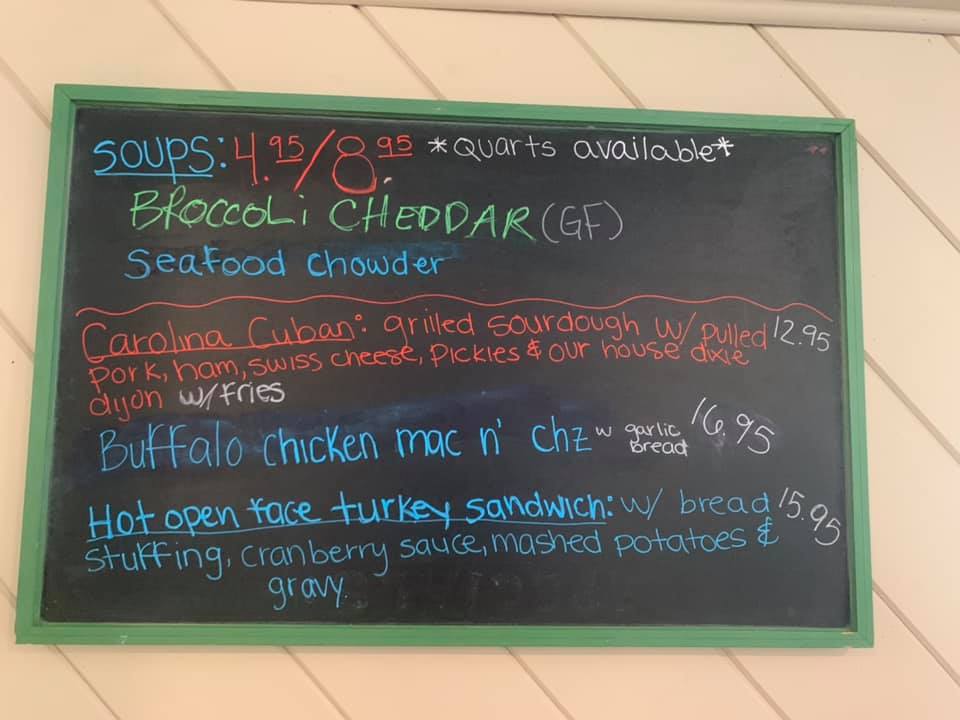 SOUPS: 4.95/8.95 *Quarts available*
BROCCOLi CHEDDAR (GF)
Seafood chowder
Carolina Cuban: grilled sourdough w/ pulled 12.95
pork, ham, swiss cheese, pickles & our house dixie
dijon w/ fries
Buffalo chicken mac n' chz w garlic bread 16.95
Hot open face turkey sandwich: w/ bread 15.95
stuffing, cranberry sauce, mashed potatoes &
gravy.